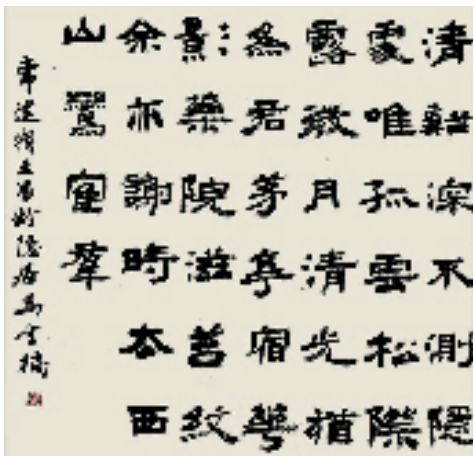 清谿深不測隱
處唯孤雲松際
露微月清光猶
為君茅亭宿華
影藥院滋苔紋
余亦謝時去西
山鸞寉羣
常建宿王昌齡隱居馬